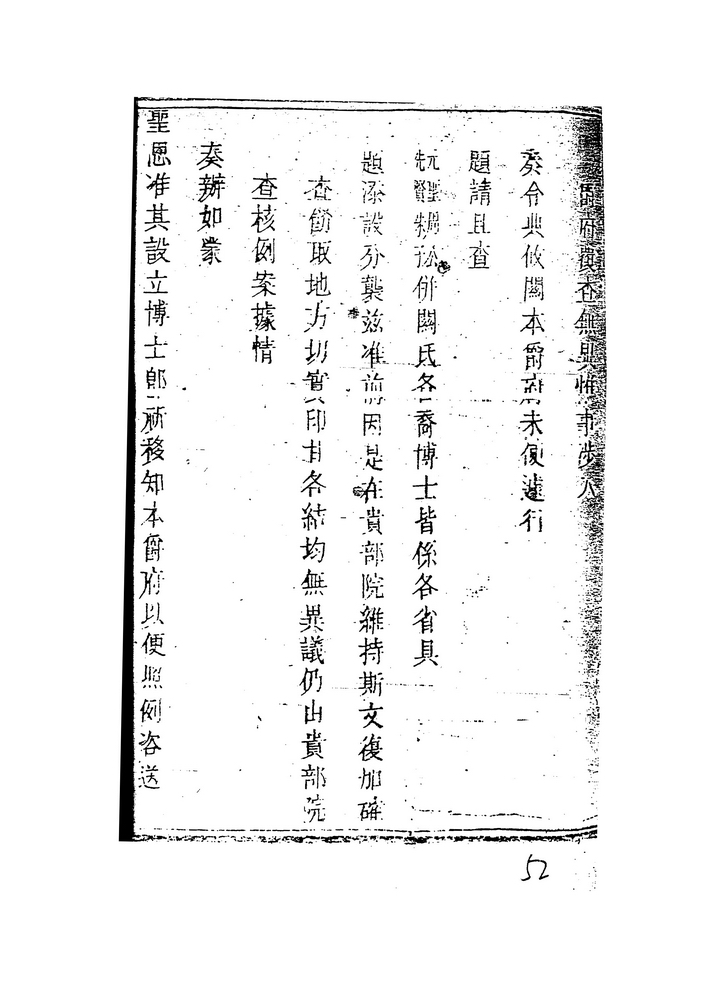 府覆查無異惟事涉
奏令典攸關本爵府未便遽行
題請且查
先賢端木併閔氏各裔博士皆係各省具
題添設分襲茲准前因是在貴部院維持斯文復加確
查飭取地方切實印甘各結均無異議仍由貴部院
查核例案據情
奏辦如蒙
聖恩准其設立博士即祈移知本爵府以便照例咨送
52